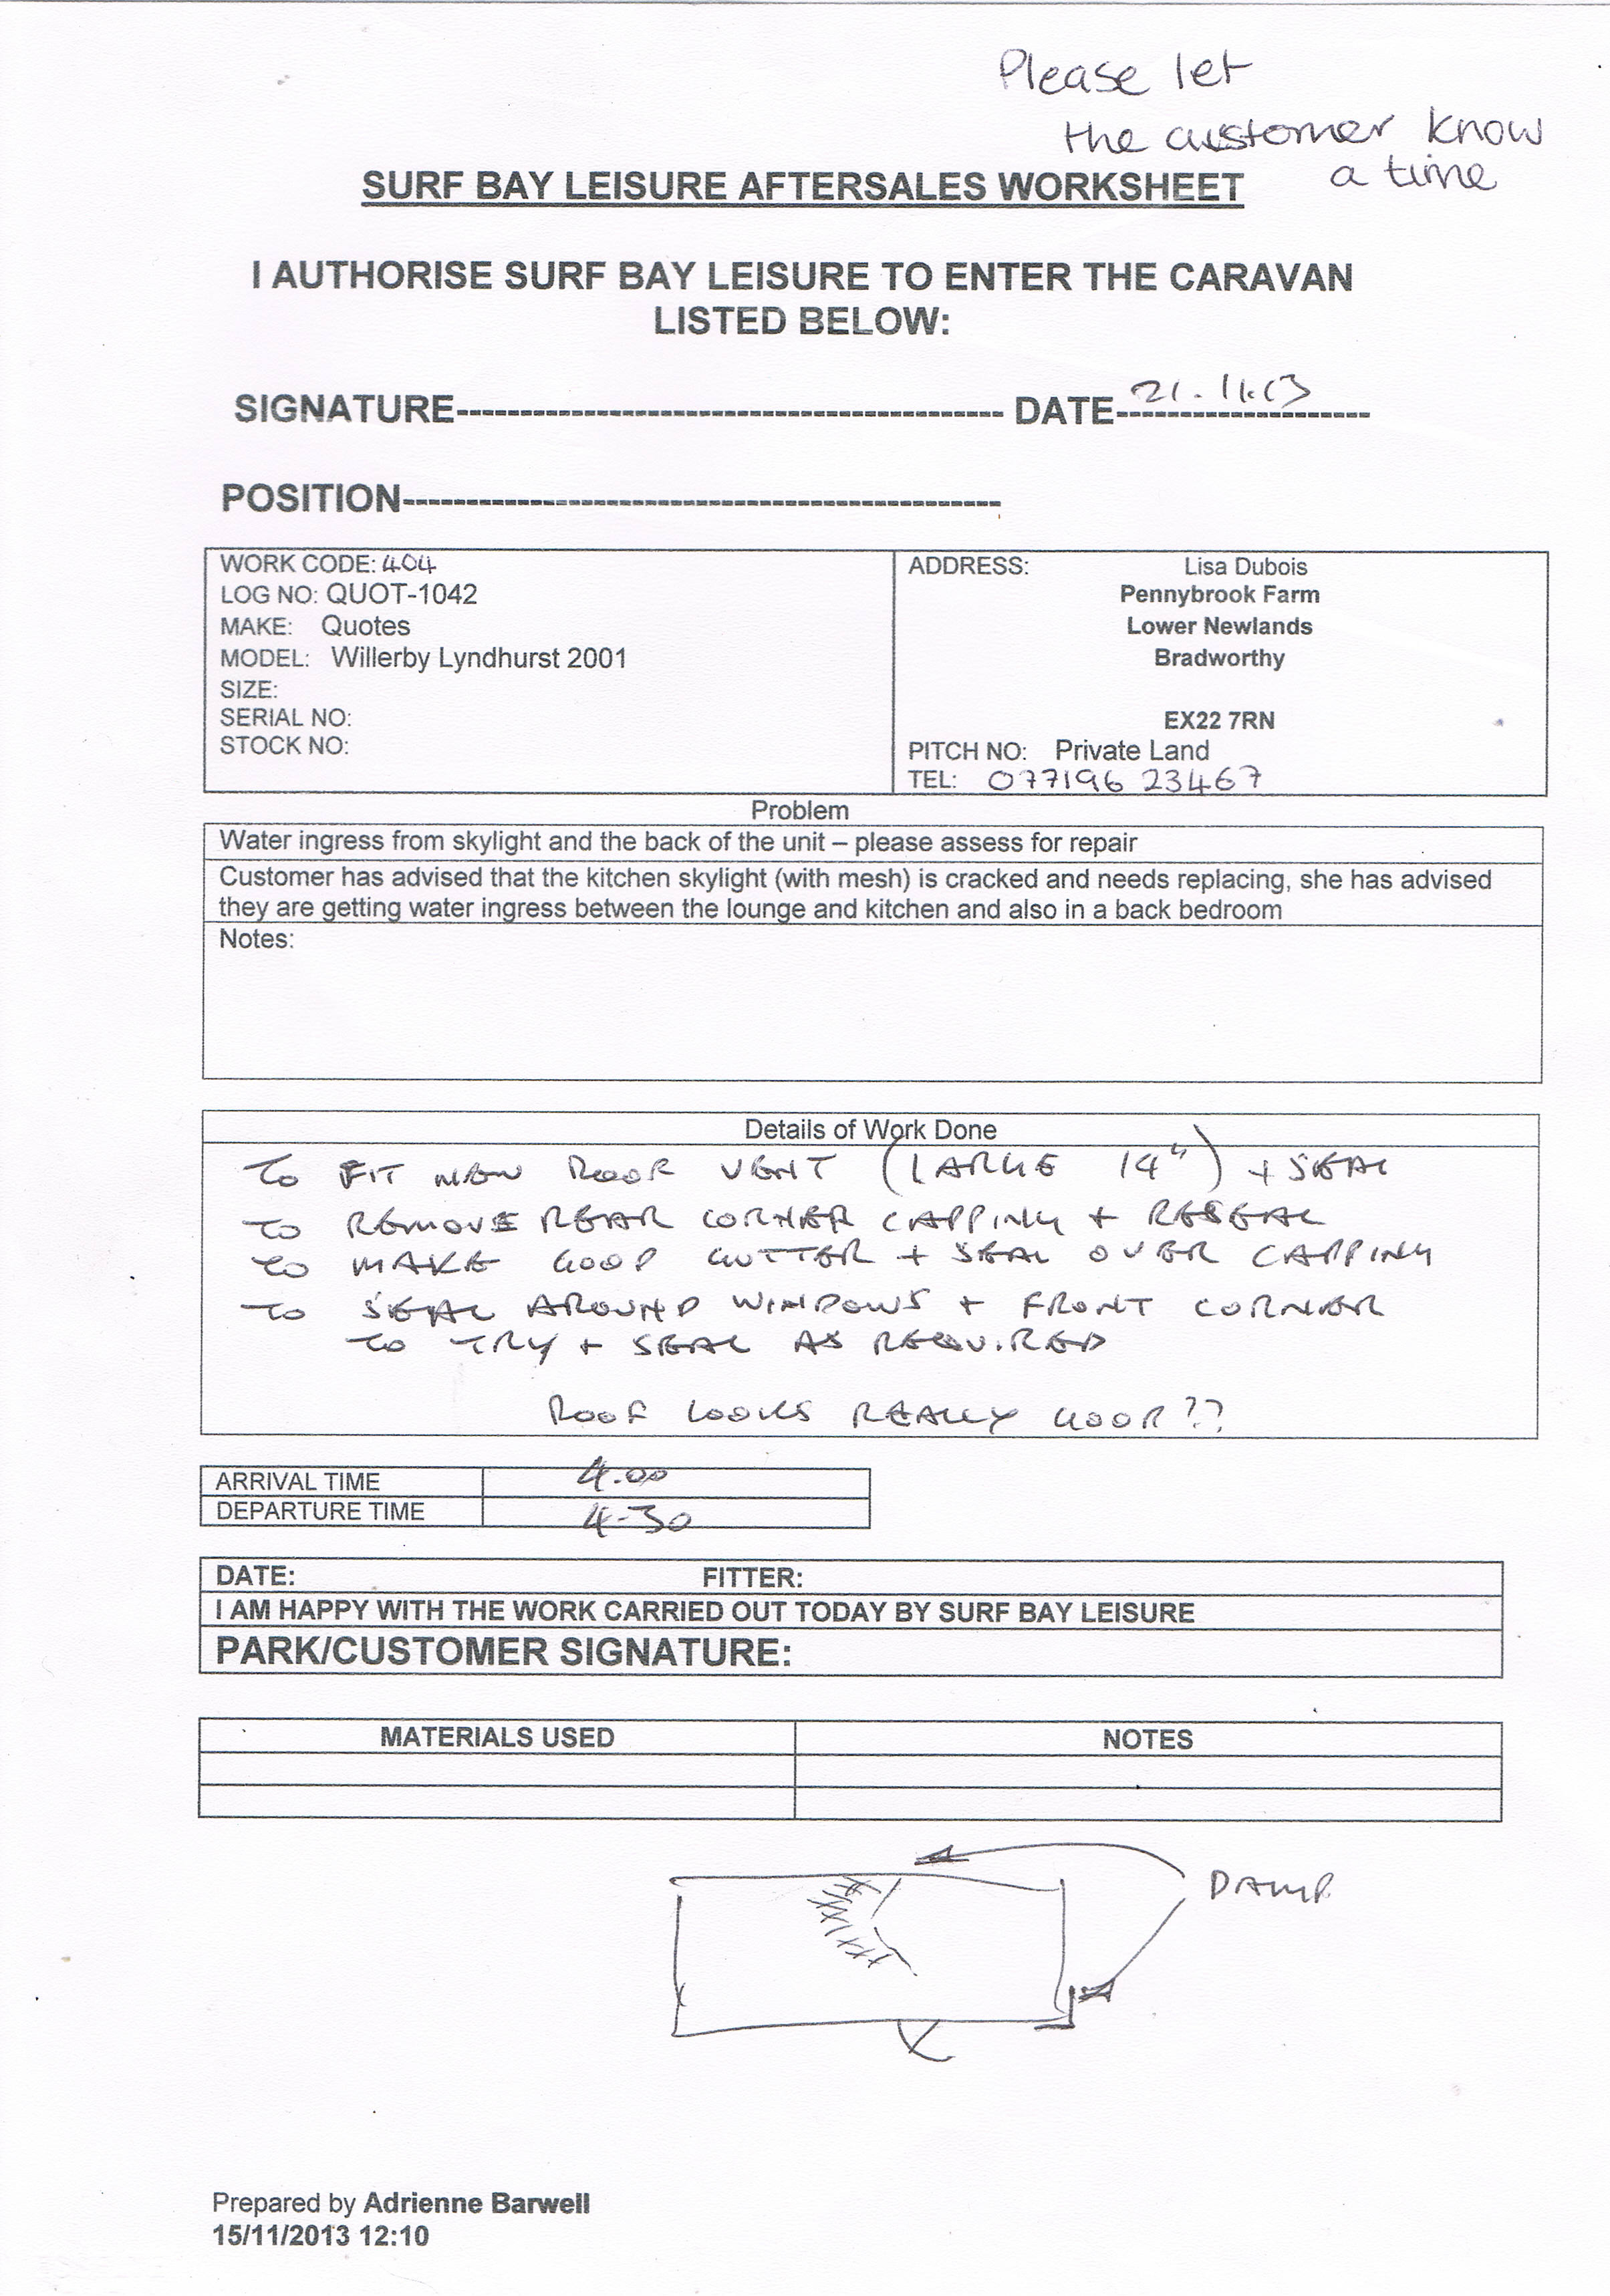 Please let
the customer know
a time
SURF BAY LEISURE AFTERSALES WORKSHEET
I AUTHORISE SURF BAY LEISURE TO ENTER THE CARAVAN
LISTED BELOW:
SIGNATURE------------------------------------------- DATE-------------------- 21.11.13
POSITION-----------------------------------------------
WORK CODE: 404
LOG NO: QUOT-1042
MAKE: Quotes
MODEL: Willerby Lyndhurst 2001
SIZE:
SERIAL NO:
STOCK NO:
ADDRESS: Lisa Dubois
Pennybrook Farm
Lower Newlands
Bradworthy
EX22 7RN
PITCH NO: Private Land
TEL: 077196 23467
Problem
Water ingress from skylight and the back of the unit – please assess for repair
Customer has advised that the kitchen skylight (with mesh) is cracked and needs replacing, she has advised
they are getting water ingress between the lounge and kitchen and also in a back bedroom
Notes:
Details of Work Done
TO FIT NEW ROOF VENT (LARGE 14") + SEAL
TO REMOVE REAR CORNER CAPPING + RESEAL
TO MAKE GOOD GUTTER + SEAL OVER CAPPING
TO SEAL AROUND WINDOWS + FRONT CORNER
TO TRY + SEAL AS REQUIRED
ROOF LOOKS REALLY
ARRIVAL TIME 4.00
DEPARTURE TIME 4-30
DATE: FITTER:
I AM HAPPY WITH THE WORK CARRIED OUT TODAY BY SURF BAY LEISURE
PARK/CUSTOMER SIGNATURE:
MATERIALS USED NOTES
DAMP
Prepared by Adrienne Barwell
15/11/2013 12:10